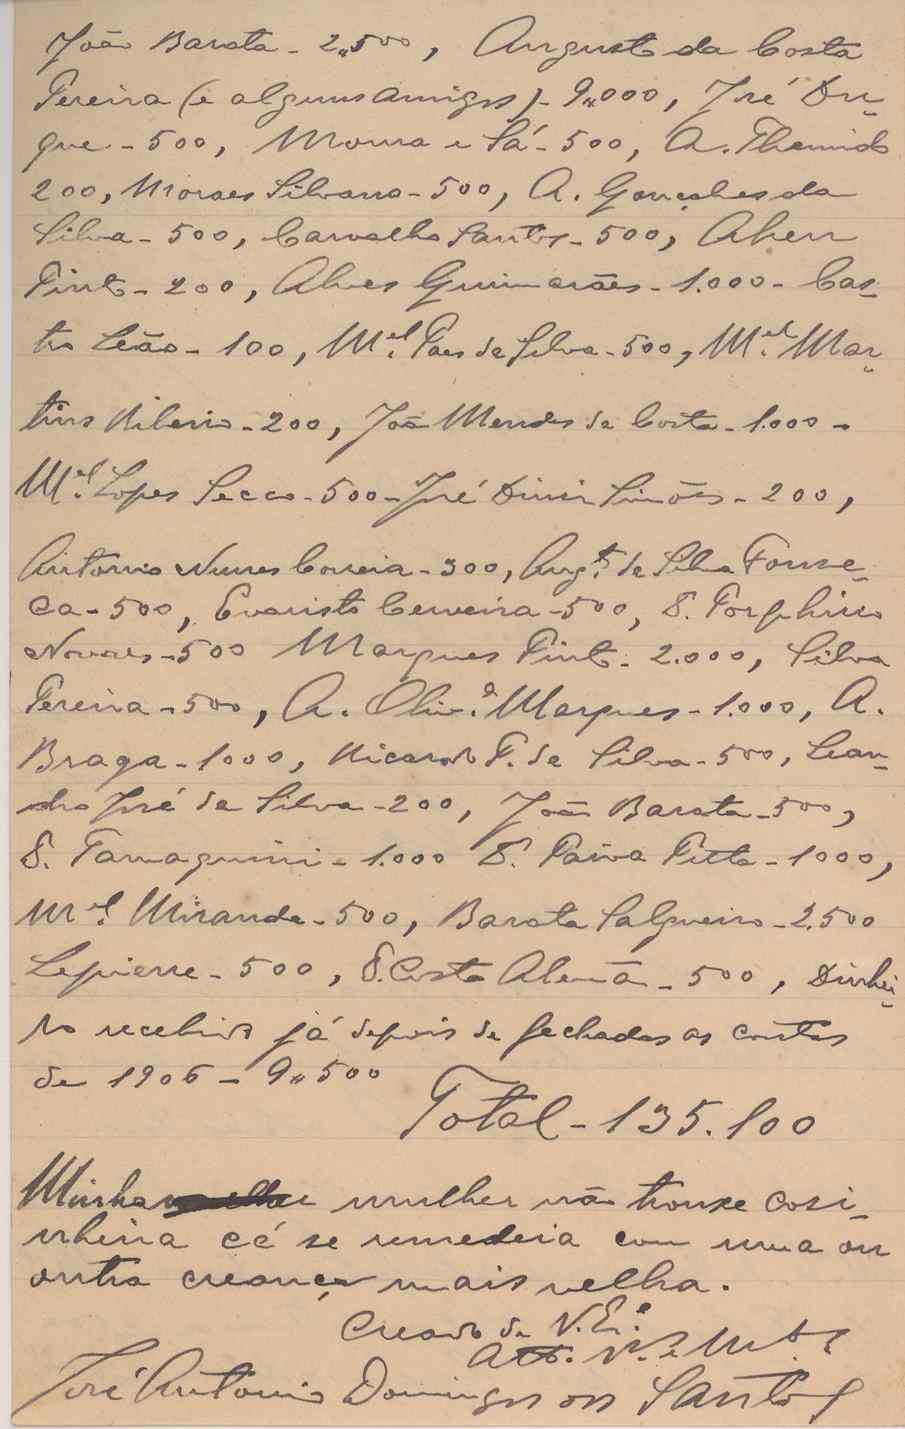 João Barata - 2,,500, Augusto da Costa
Pereira (e alguns amigos) - 9,,000, José Du-
que - 500, Moura e Sá - 500, A. Themido
200, Moraes Silvano - 500, A. Gonçalves da
Silva - 500, Carvalho Santos - 500, Abeu
Pinto - 200, Alves Guimarães - 1.000 - Cas-
tro Leão - 100, Mel. Paes da Silva - 500, Mel. Mar-
tins Ribeiro - 200, João Mendes da Costa - 1.000 -
Mel. Lopes Secco - 500 - José Diniz Simões - 200,
Antonio Nunes Correia - 300, Augto. da Silva Fonse-
ca - 500, Evaristo Cerveira - 500, D. Porphirio
Novaes - 500 Marques Pinto - 2.000, Silva
Pereira - 500, A. Olivª. Marques - 1.000, A.
Braga - 1000, Ricardo P. da Silva - 500, Lean-
dro José da Silva - 200, João Barata - 500,
D. Tamagnini - 1.000 D. Paiva Pitta - 1000,
Mel. Miranda - 500, Barata Salgueiro - 2.500
Lepierre - 500, D. Costa Alemã - 500, Dinhei-
ro recebido já depois de fechadas as contas
de 1906 - 9,,500
Total - 135.100
Minha mulher não trouxe cosi-
nheira cá se remedeia com uma ou
outra creança mais velha.
Creado de V. Eª.
Atto. Vor e
José Antonio Domingos os Santos